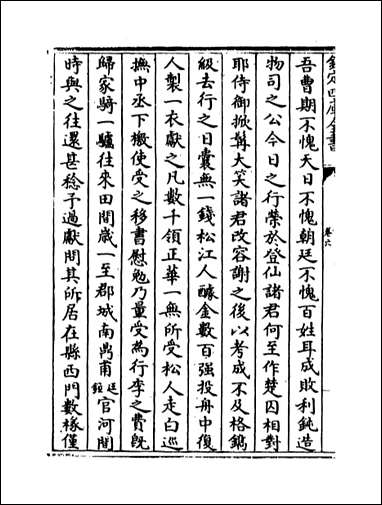 欽定四庫全書
卷六
吾曹期不愧天日不愧朝廷不愧百姓耳成敗利鈍造
物司之公今日之行榮於登仙諸君何至作楚囚相對
耶侍御掀髯大笑諸君改容謝之後以考成不及格鐫
級去行之日囊無一錢松江人醵金數百强投舟中復
人製一衣獻之凡數千領正華一無所受松人走白巡
撫中丞下檄使受之移書慰勉乃量受為行李之費既
歸家騎一驢往來田間歲一至郡城南鼎甫廷鉉官河間
時與之往還甚稔予過獻問其所居在縣西門數椽僅